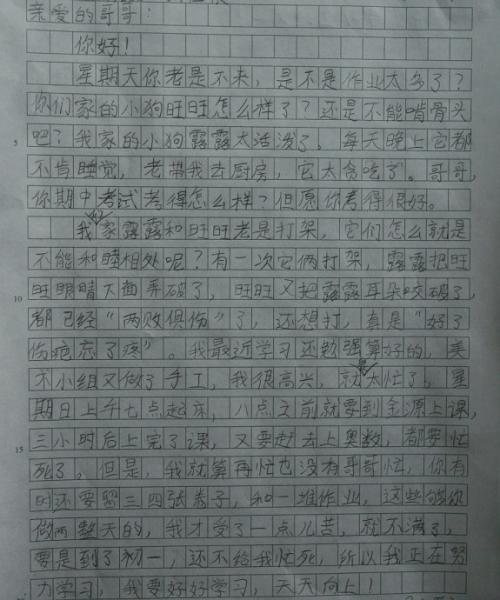 亲爱的哥哥：
你好！
星期天你老是不来，是不是作业太多了？
你们家的小狗旺旺怎么样了？还是不能啃骨头
吧？我家的小狗露露太活泼了，每天晚上它都
5
不肯睡觉，老带我去厨房，它太贪吃了。哥哥，
你期中考试考得怎么样？但愿你考得很好。
我家露露和旺旺老是打架，它们怎么就是
不能和睦相处呢？有一次它俩打架，露露把旺
旺眼睛大面弄破了，旺旺又把露露耳朵咬破了，
10
都已经“两败俱伤”了，还想打，真是“好了
伤疤忘了疼”。我最近学习还勉强算好的，美
术小组又做了手工，我很高兴，就太忙了，星
期日上午七点起床，八点之前就要到金源上课，
三小时后上完了课，又要赶去上奥数，都要忙
15
死了。但是，我就算再忙也没有哥哥忙，你有
时还要留三四张卷子，和一堆作业，这些够你
做两整天的，我才受了一点儿苦，就不满了，
要是到了初一，还不给我忙死，所以我正在努
力学习，我要好好学习，天天向上！